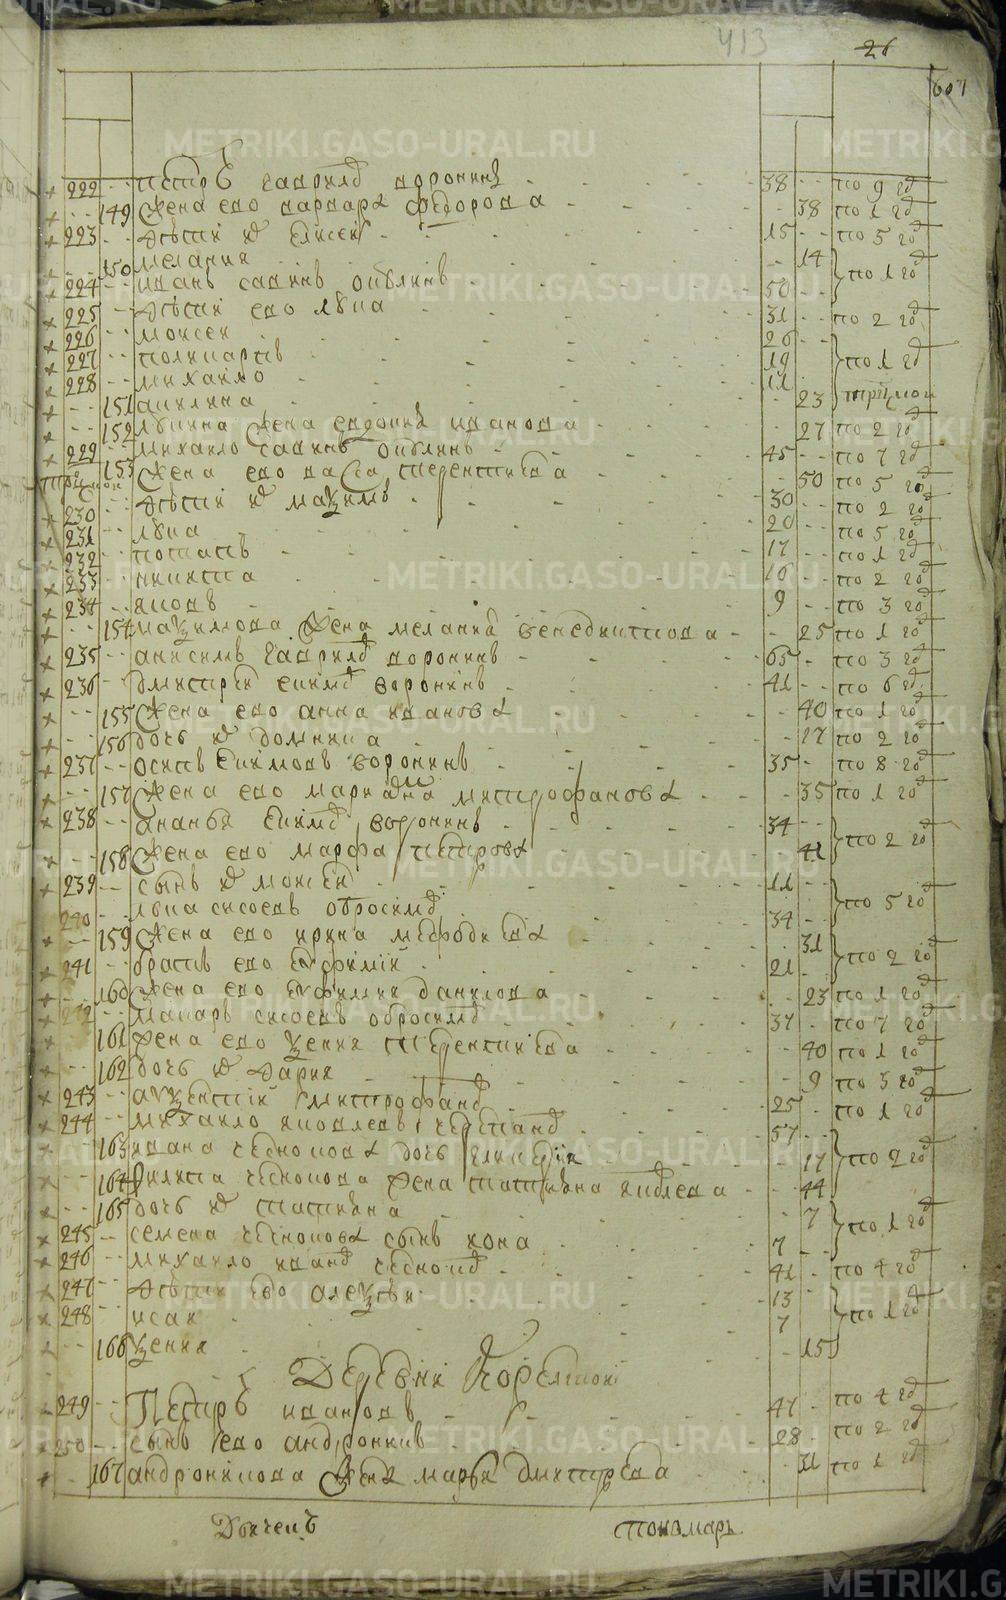 413
26
607
222 петръ гаврилов воронинъ 38 по 9 год
149 жена ево варвара федорова 38 по 1 год
223 дѣти их елисеи 15 по 5 год
150 мелания 14 по 1 год
224 иванъ савинъ 50
225 дѣти ево лука 31 по 2 год
226 моисеи 26
227 поликарпъ 19 по 1 год
228 михаило 11
151 акилина 23
152 лукина жена евдокия иванова 27 по 2 год
229 михаило савинъ 45 по 7 год
153 жена ево васса терентиева 50 по 5 год
230 дѣти их маѯимъ 30 по 2 год
231 лука 20 по 5 год
232 потапъ 17 по 1 год
233 никита 16 по 2 год
234 яковъ 9 по 3 год
154 маѯимова жена мелания венедиктова 25 по 1 год
235 анисимъ гаврилов воронинъ 65 по 3 год
236 дмитреи екимов воронинъ 41 по 6 год
155 жена ево анна иванова 40 по 1 год
156 дочь их домника 17 по 2 год
237 осипъ екимовъ воронинъ 35 по 8 год
157 жена ево мариамна митрофанова 35 по 1 год
238 ананья екимов воронинъ 34 по 2 год
158 жена ево марфа петрова 41
239 сынъ их моисеи 11 по 5 год
240 лука сисоевъ обросимов 34
159 жена ево ирина мефодиева 31 по 2 год
241 братъ ево еуфимии 21
160 жена ево еуфимия данилова 23 по 1 год
242 макаръ сисоевъ обросимов 37 по 7 год
161 жена ево ѯения терентиева 40 по 1 год
162 дочь их дария 9 по 3 год
243 авѯентии митрофанов 25 по 1 год
244 михаило яковлевъ 57
163 ивана чеснокова дочь 17 по 2 год
164 филипа чеснокова жена татияна яковлева 44
165 дочь их татияна 7 по 1 год
245 семена чеснокова сынъ иона 7
246 михаило иванов чесноков 41 по 4 год
247 дѣти ево алеѯѣи 13
248 исак 7 по 1 год
166 ѯения 15
Деревни Корелскои
249 Петръ ивановъ 47 по 4 год
250 сынъ ево андроникъ 28 по 2 год
167 андроникова жена марья дмитриева 31 по 1 год
Дьячекъ пономарь